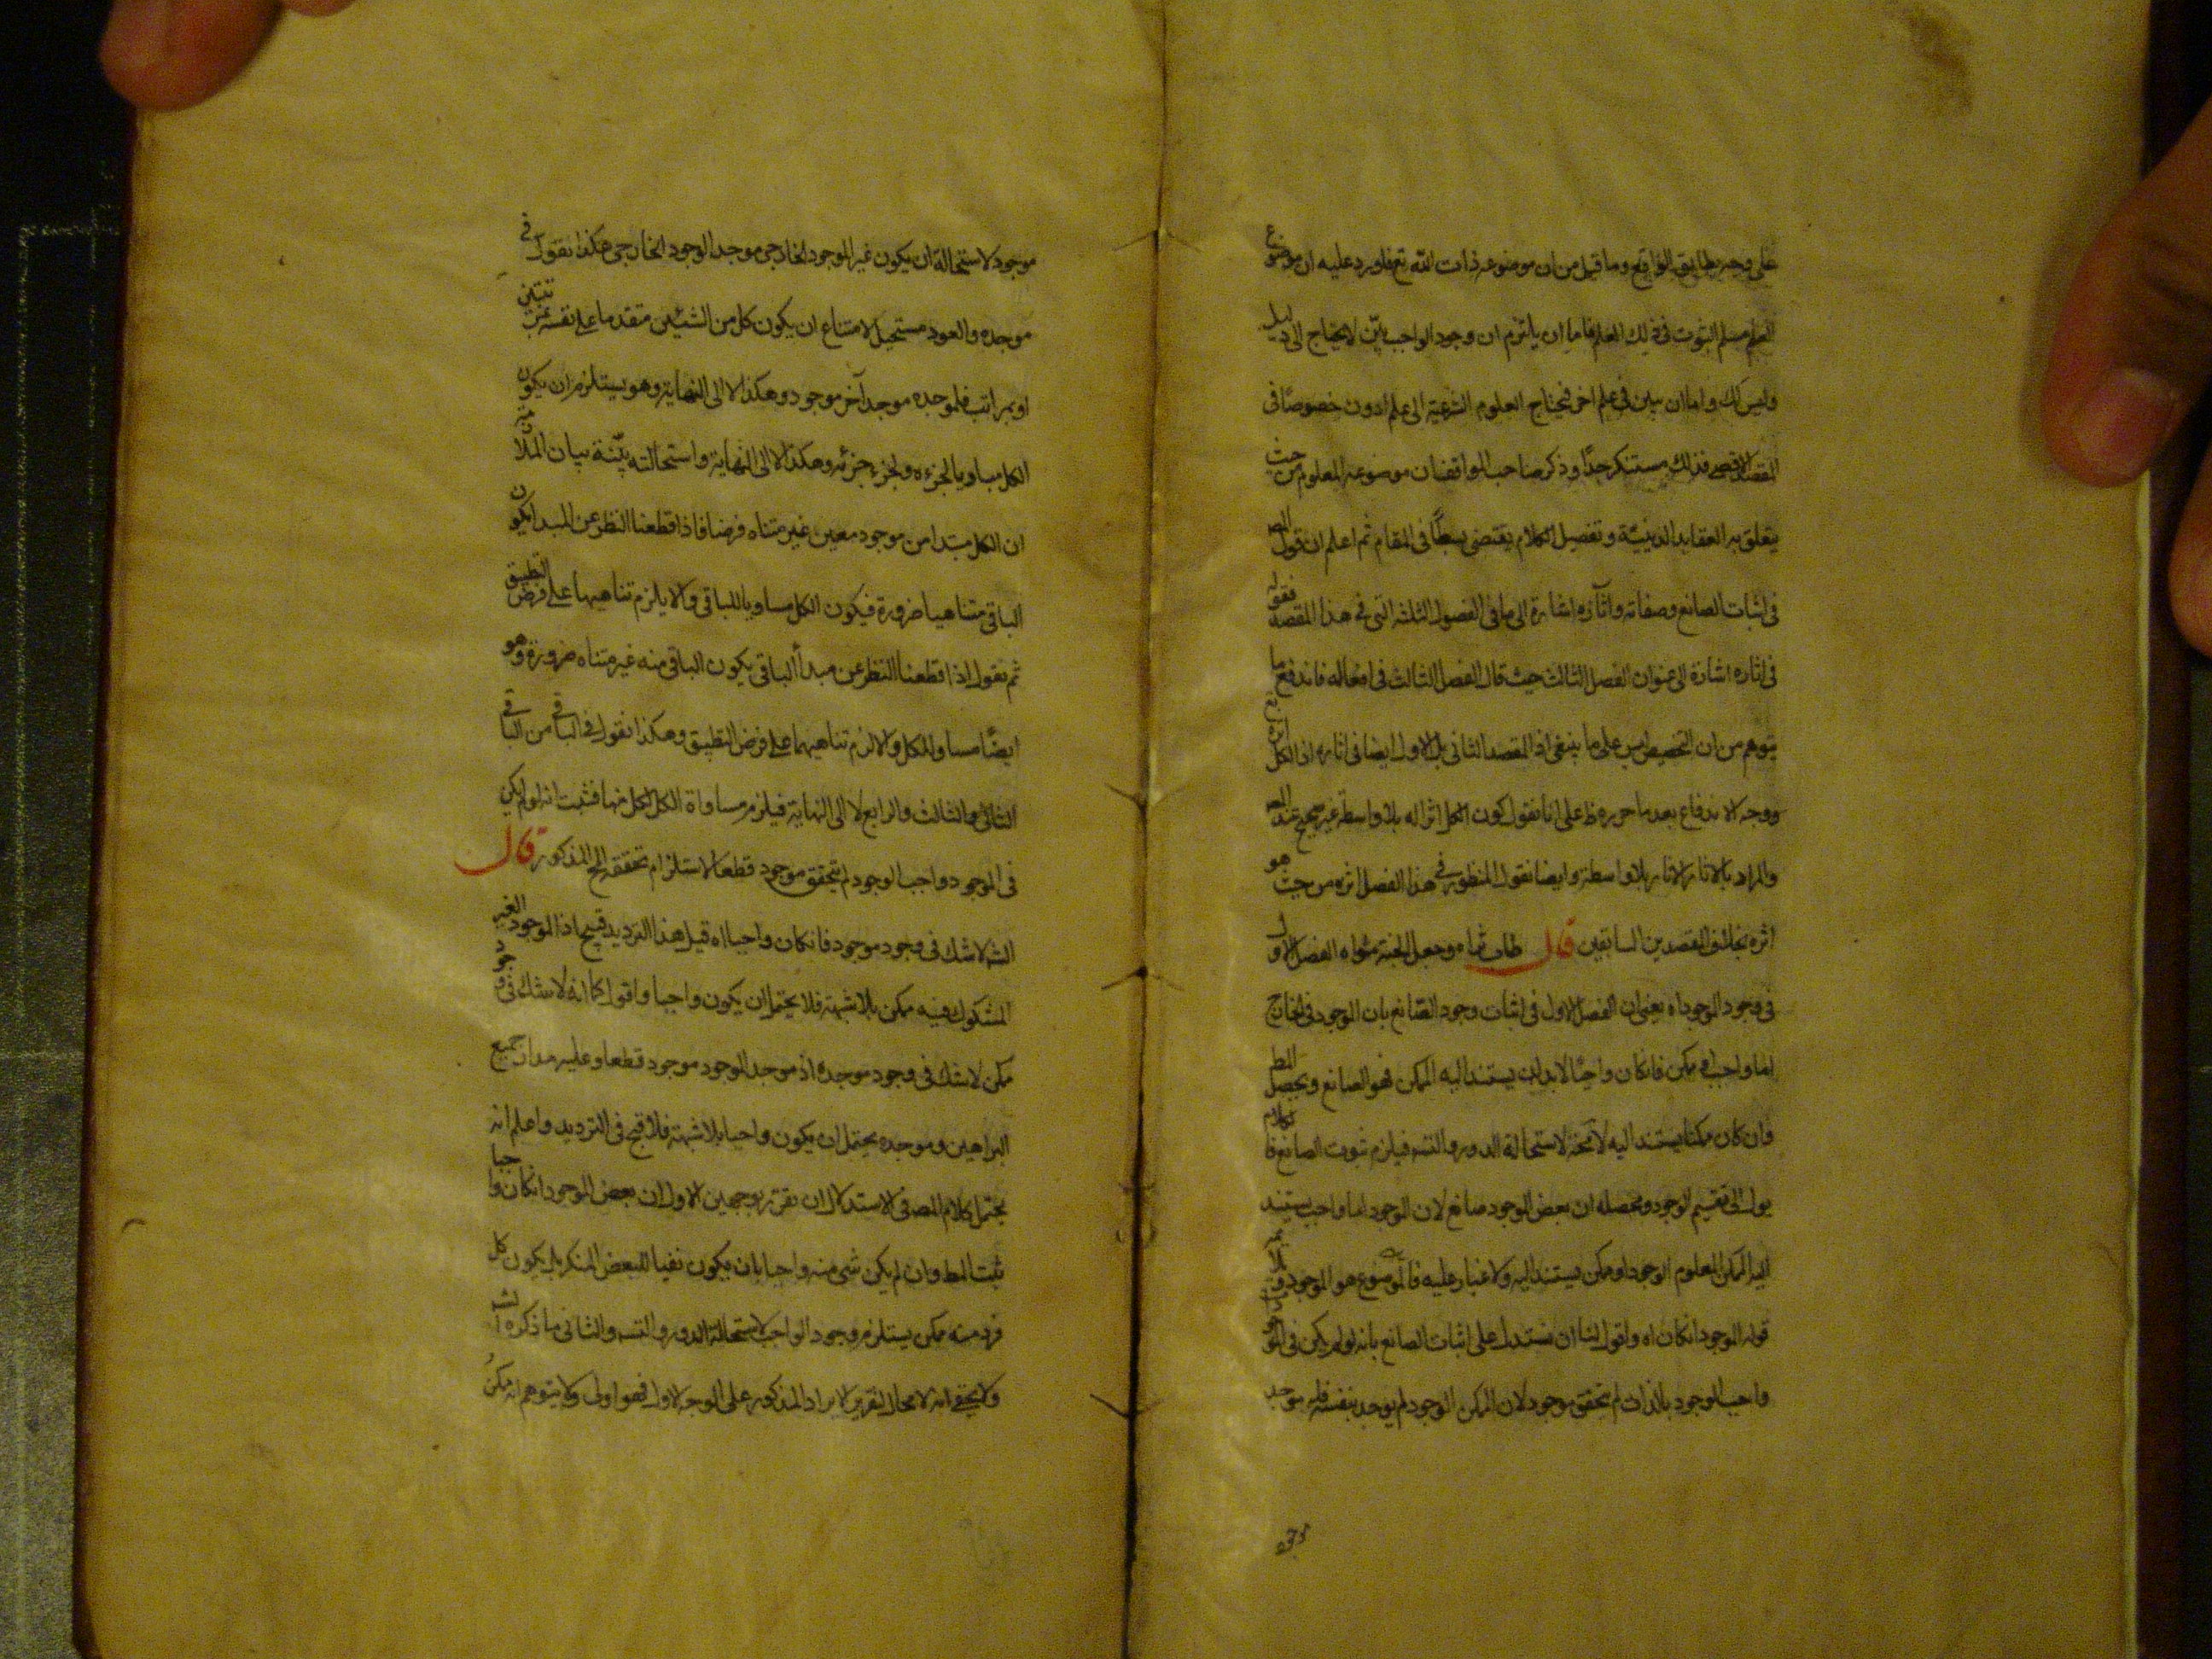 على وجه يطابق الواقع وما قيل من ان موضوعه ذات الله تع فاورد عليه ان موضوع
العلم مسلم الثبوت في ذلك العلم فاما ان يلتزم ان وجود الواجب بيّن لا يحتاج الى دليل
وليس كك واما ان يبين في علم اخر فيحتاج العلوم الشرعية الى علم ادون خصوصًا في
المقصد الاقصى فذلك مستنكر جدًا وذكر صاحب المواقف ان موضوعه المعلوم من حيث
يتعلق به العقايد الدينيّة وتفصيل الكلام يقتضى بسطًا في المقام ثم اعلم ان قول المص
في اثبات الصانع وصفاته وآثاره اشارة الى ما في الفصول الثلثه التي في هذا المقصد فقوله
في اثاره اشارة الى عنوان الفصل الثالث حيث قال الفصل الثالث في افعاله فاندفع ما
يتوهم من ان التخصيص ليس على ما ينبغى اذ المقصد الثانى بل الاول ايضا في اثاره اذ الكل اثره
ووجه الاندفاع بعد ما حرره ظ على انا نقول كون الكل اثرا له بلا واسطة غير صحيح عند المص
والمراد بالاثار الاثار بلا واسطة وايضا نقول المنظور في هذا الفصل اثره من حيث هو
اثره بخلاف المقصدين السابقين قال طاب ثراه وجعل الجنة مثواه الفصل الاول
في وجود الموجود اه يعنى ان الفصل الاول في اثبات وجود الصّانع بان الموجود في الخارج
اما واجب او ممكن فان كان واجبًا لابد ان يستند اليه الممكن فهو الصانع ويحصل المط
فان كان ممكنا يستند اليه لا محة لاستحالة الدور والتسه فيلزم ثبوت الصانع فالكلام
يول الى تقسيم الوجود ومحصله ان بعض الموجود صانع لان الموجود اما واجب يستند
اليه الممكن المعلوم الوجود او ممكن يستند اليه ولا غبار عليه فالموضوع هو الموجود
قوله الموجود ان كان اه واقول لنا ان نستدل على اثبات الصانع بانه لو لم يكن في الموجود
واجب الوجود بالذات لم يتحقق موجود لان الممكن الموجود لم يوجد بنفسه فله موجد
موجود
موجود لاستحالة ان يكون غير الموجود الخارجى موجد الوجود الخارجى هكذا نقول في
موجده والعود مستحيل لامتناع ان يكون كل من الشيئين متقدما على نفسه بمرتبتين
او بمراتب فلموجده موجد آخر موجود وهكذا لا الى النهاية وهو يستلزم ان يكون
الكل مساويا لجزءه ولجزء جزئه وهكذا لا الى النهاية واستحالته بيّنة بيان الملازمة
ان الكل مبتدا من موجود معين غير متناه فرضا فاذا قطعنا النظر عن المبدا يكون
الباقى متناهيا ضرورة فيكون الكل مساويا للباقى والا يلزم تناهيهما على فرض التطبيق
ثم نقول اذا قطعنا النظر عن مبدأ الباقى يكون الباقى منه غير متناه ضرورة وهو
ايضًا مساو للكل والا لزم تناهيهما على فرض التطبيق وهكذا نقول في الباقى من الباقى
الثانى والثالث والرابع لا الى النهاية فيلزم مساواة الكل لكل منها فثبت انه لو لم يكن
في الموجود واجب الوجود لم يتحقق موجود قطعا لاستلزام تحققه المح المذكور قال
الشه لا شك في وجود موجود فان كان واجبا اه قيل هذا الترديد قبيح اذ الموجود الغير
المشكوك فيه ممكن بلا شبهة فلا يحتمل ان يكون واجبا واقول كما انه لا شك في وجود
ممكن لا شك في وجود موجده اذ موجد الموجود موجود قطعا وعليه مدار جميع
البراهين وموجده يحتمل ان يكون واجبا بلا شبهة فلا قبح في الترديد واعلم انه
يحتمل كلام المص في الاستدلال ان نقرره بوجهين الاول ان بعض الموجود ان كان واجبا
ثبت المط وان لم يكن شى منه واجبا بان يكون نفيا للبعض المنكر بل يكون كل
فرد منه ممكن يستلزم وجود الواجب لاستحالة الدور والتسه والثانى ما ذكره الشه
ولا يخفى انه لا مجال لتقرير الايراد المذكور على الوجه الاول فهو اولى ولا يتوهم انه يمكن